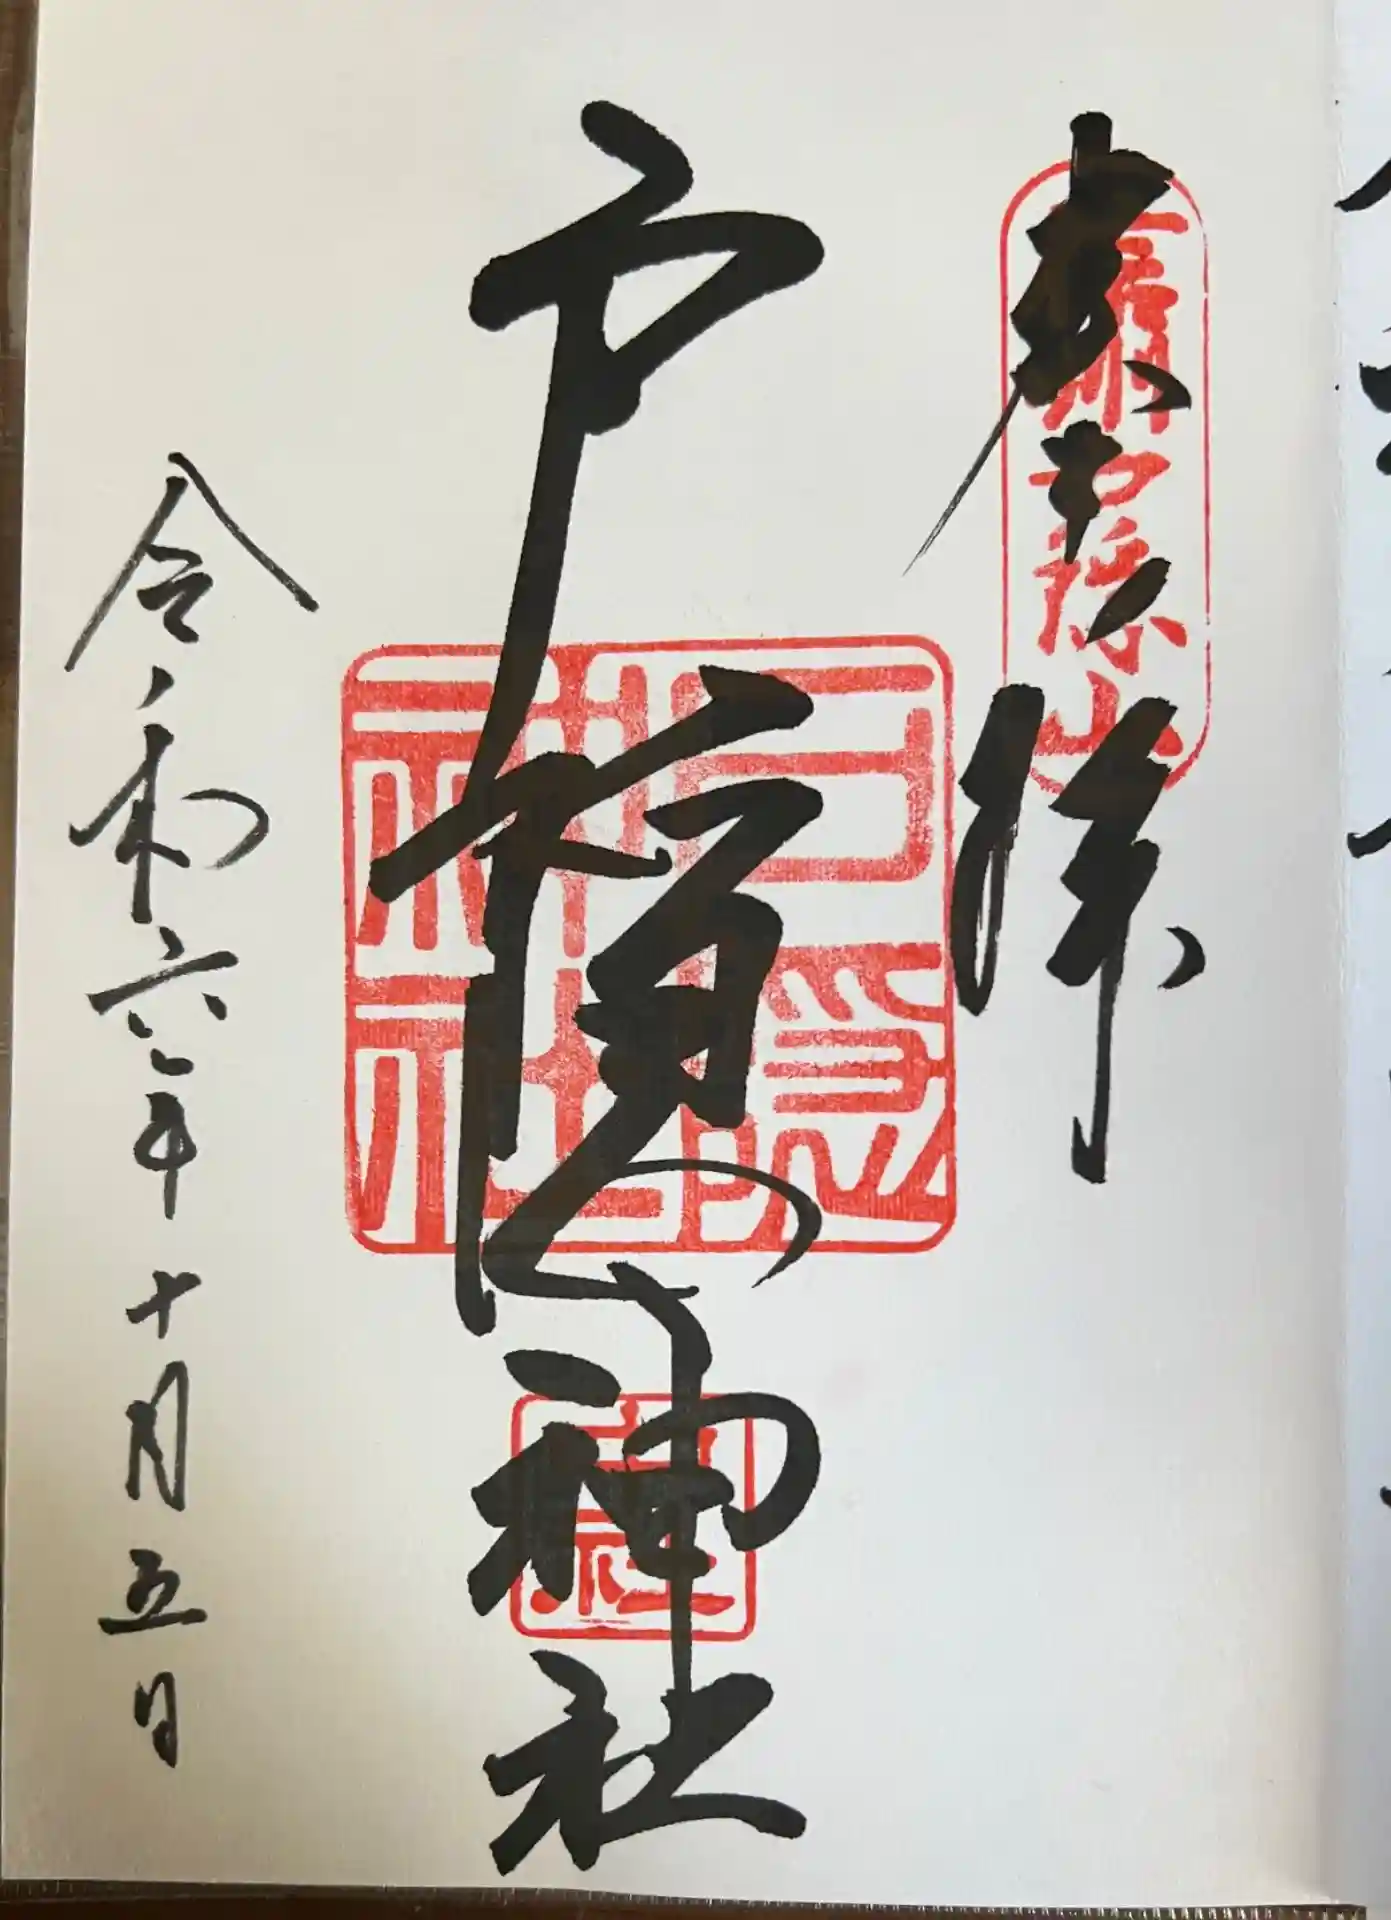 奉拝
信州戸隠山
戸隠神社
戸隠神社
令和六年十月五日